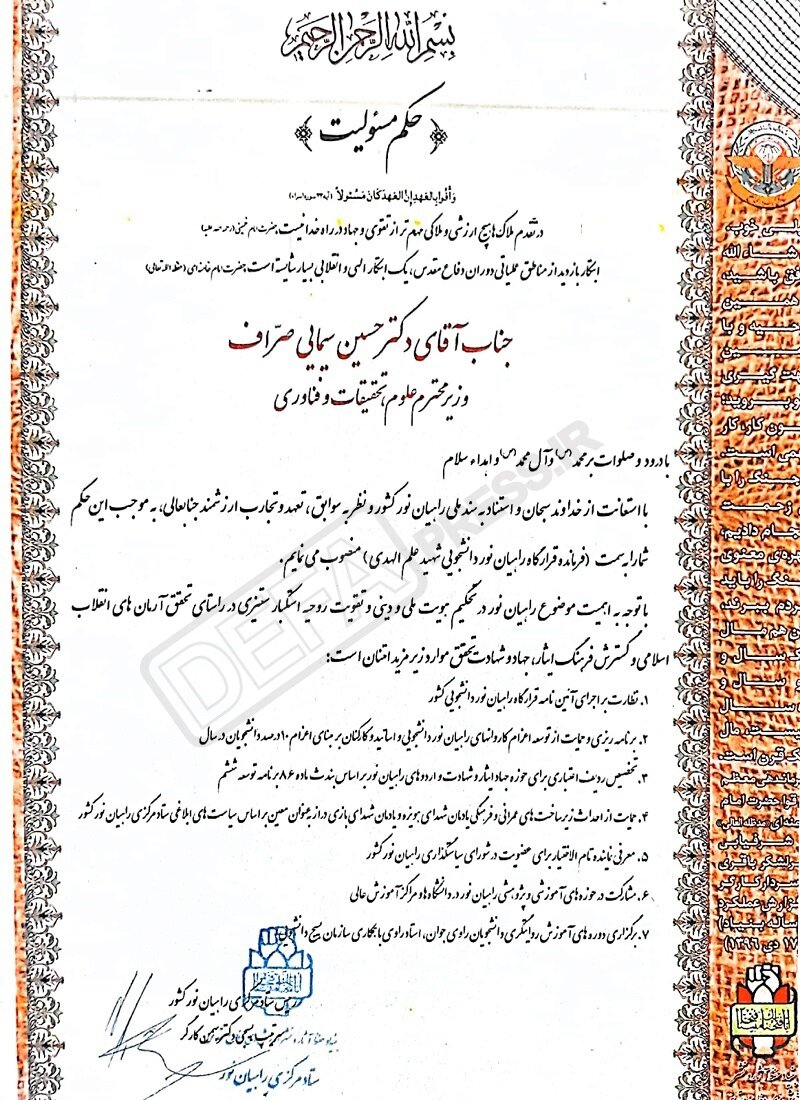 بسم الله الرحمن الرحیم
حکم مسئولیت
وَ أَوْفُوا بِالْعَهْدِ إِنَّ الْعَهْدَ كَانَ مَسْئُولاً
در تقدم ملاک‌ها هیچ ارزشی و ملاکی مهم‌تر از تقوی و جهاد در راه خدا نیست، حضرت امام خمینی (رحمت الله علیه)
ابتکار بازدید از مناطق عملیاتی دوران دفاع مقدس، یک ابتکار الهی و انقلابی بسیار شایسته است، حضرت امام خامنه‌ای (حفظه الله تعالی)
جناب آقای دکتر حسین سیمایی صرّاف
وزیر محترم علوم، تحقیقات و فناوری
با درود و صلوات بر محمد (ص) و آل محمد (ص) و اهداء سلام
با استعانت از خداوند سبحان و استناد به سند ملی راهیان نور کشور و نظر به سوابق، تعهد و تجارب ارزشمند جنابعالی، به موجب این حکم
شما را به سمت (فرمانده قرارگاه راهیان نور دانشجویی شهید علم الهدی) منصوب می نمایم.
با توجه به اهمیت موضوع راهیان نور در تحکیم هویت ملی و دینی و تقویت روحیه استکبار ستیزی در راستای تحقق آرمان های انقلاب
اسلامی و گسترش فرهنگ ایثار، جهاد و شهادت تحقق موارد زیر مزید امتنان است:
۱. نظارت بر اجرای آئین نامه قرارگاه راهیان نور دانشجویی کشور
۲. برنامه ریزی و حمایت از توسعه اعزام کاروانهای راهیان نور دانشجویی و اساتید و کارکنان بر مبنای اعزام ۱۰ درصد دانشجویان در سال
۳. تخصیص ردیف اعتباری برای حوزه جهاد ایثار و شهادت و اردوهای راهیان نور بر اساس بند ث ماده ۸۶ برنامه توسعه ششم
۴. حمایت از احداث زیرساخت های عمرانی و فرهنگی یادمان شهدای هویزه و یادمان شهدای بازی دراز به عنوان معین بر اساس سیاست های ابلاغی ستاد مرکزی راهیان نور کشور
۵. معرفی نماینده تام الاختیار برای عضویت در شورای سیاستگذاری راهیان نور کشور
۶. مشارکت در حوزه های آموزشی و پژوهشی راهیان نور در دانشگاه ها و مراکز آموزش عالی
۷. برگزاری دوره های آموزش روایتگری دانشجویان راوی جوان، استاد راوی با همکاری سازمان بسیج دانشجویی
رئیس ستاد مرکزی راهیان نور کشور
سرتیپ بسیجی دکتر بهمن کارگر
ستاد مرکزی راهیان نور
DEFAPRESS.IR
خیلی خوب،
شاء الله
باشید،
همین
و با
گیری
بروید؛
کار، کار
است.
جنگ را با
زحمت
انجام دادیم،
معنوی
جنگ را باید
ببرند،
هم مال
سال و
سال و
سال
نیست، مال
یک قرن است.
فرماندهی معظم
قوا حضرت امام
«مدظله العالی»
شرفیابی
سرلشکر باقری
سردار کارگر
گزارش عملکرد
ساله بنیاد)
۱۷ دی ۱۳۹۶)